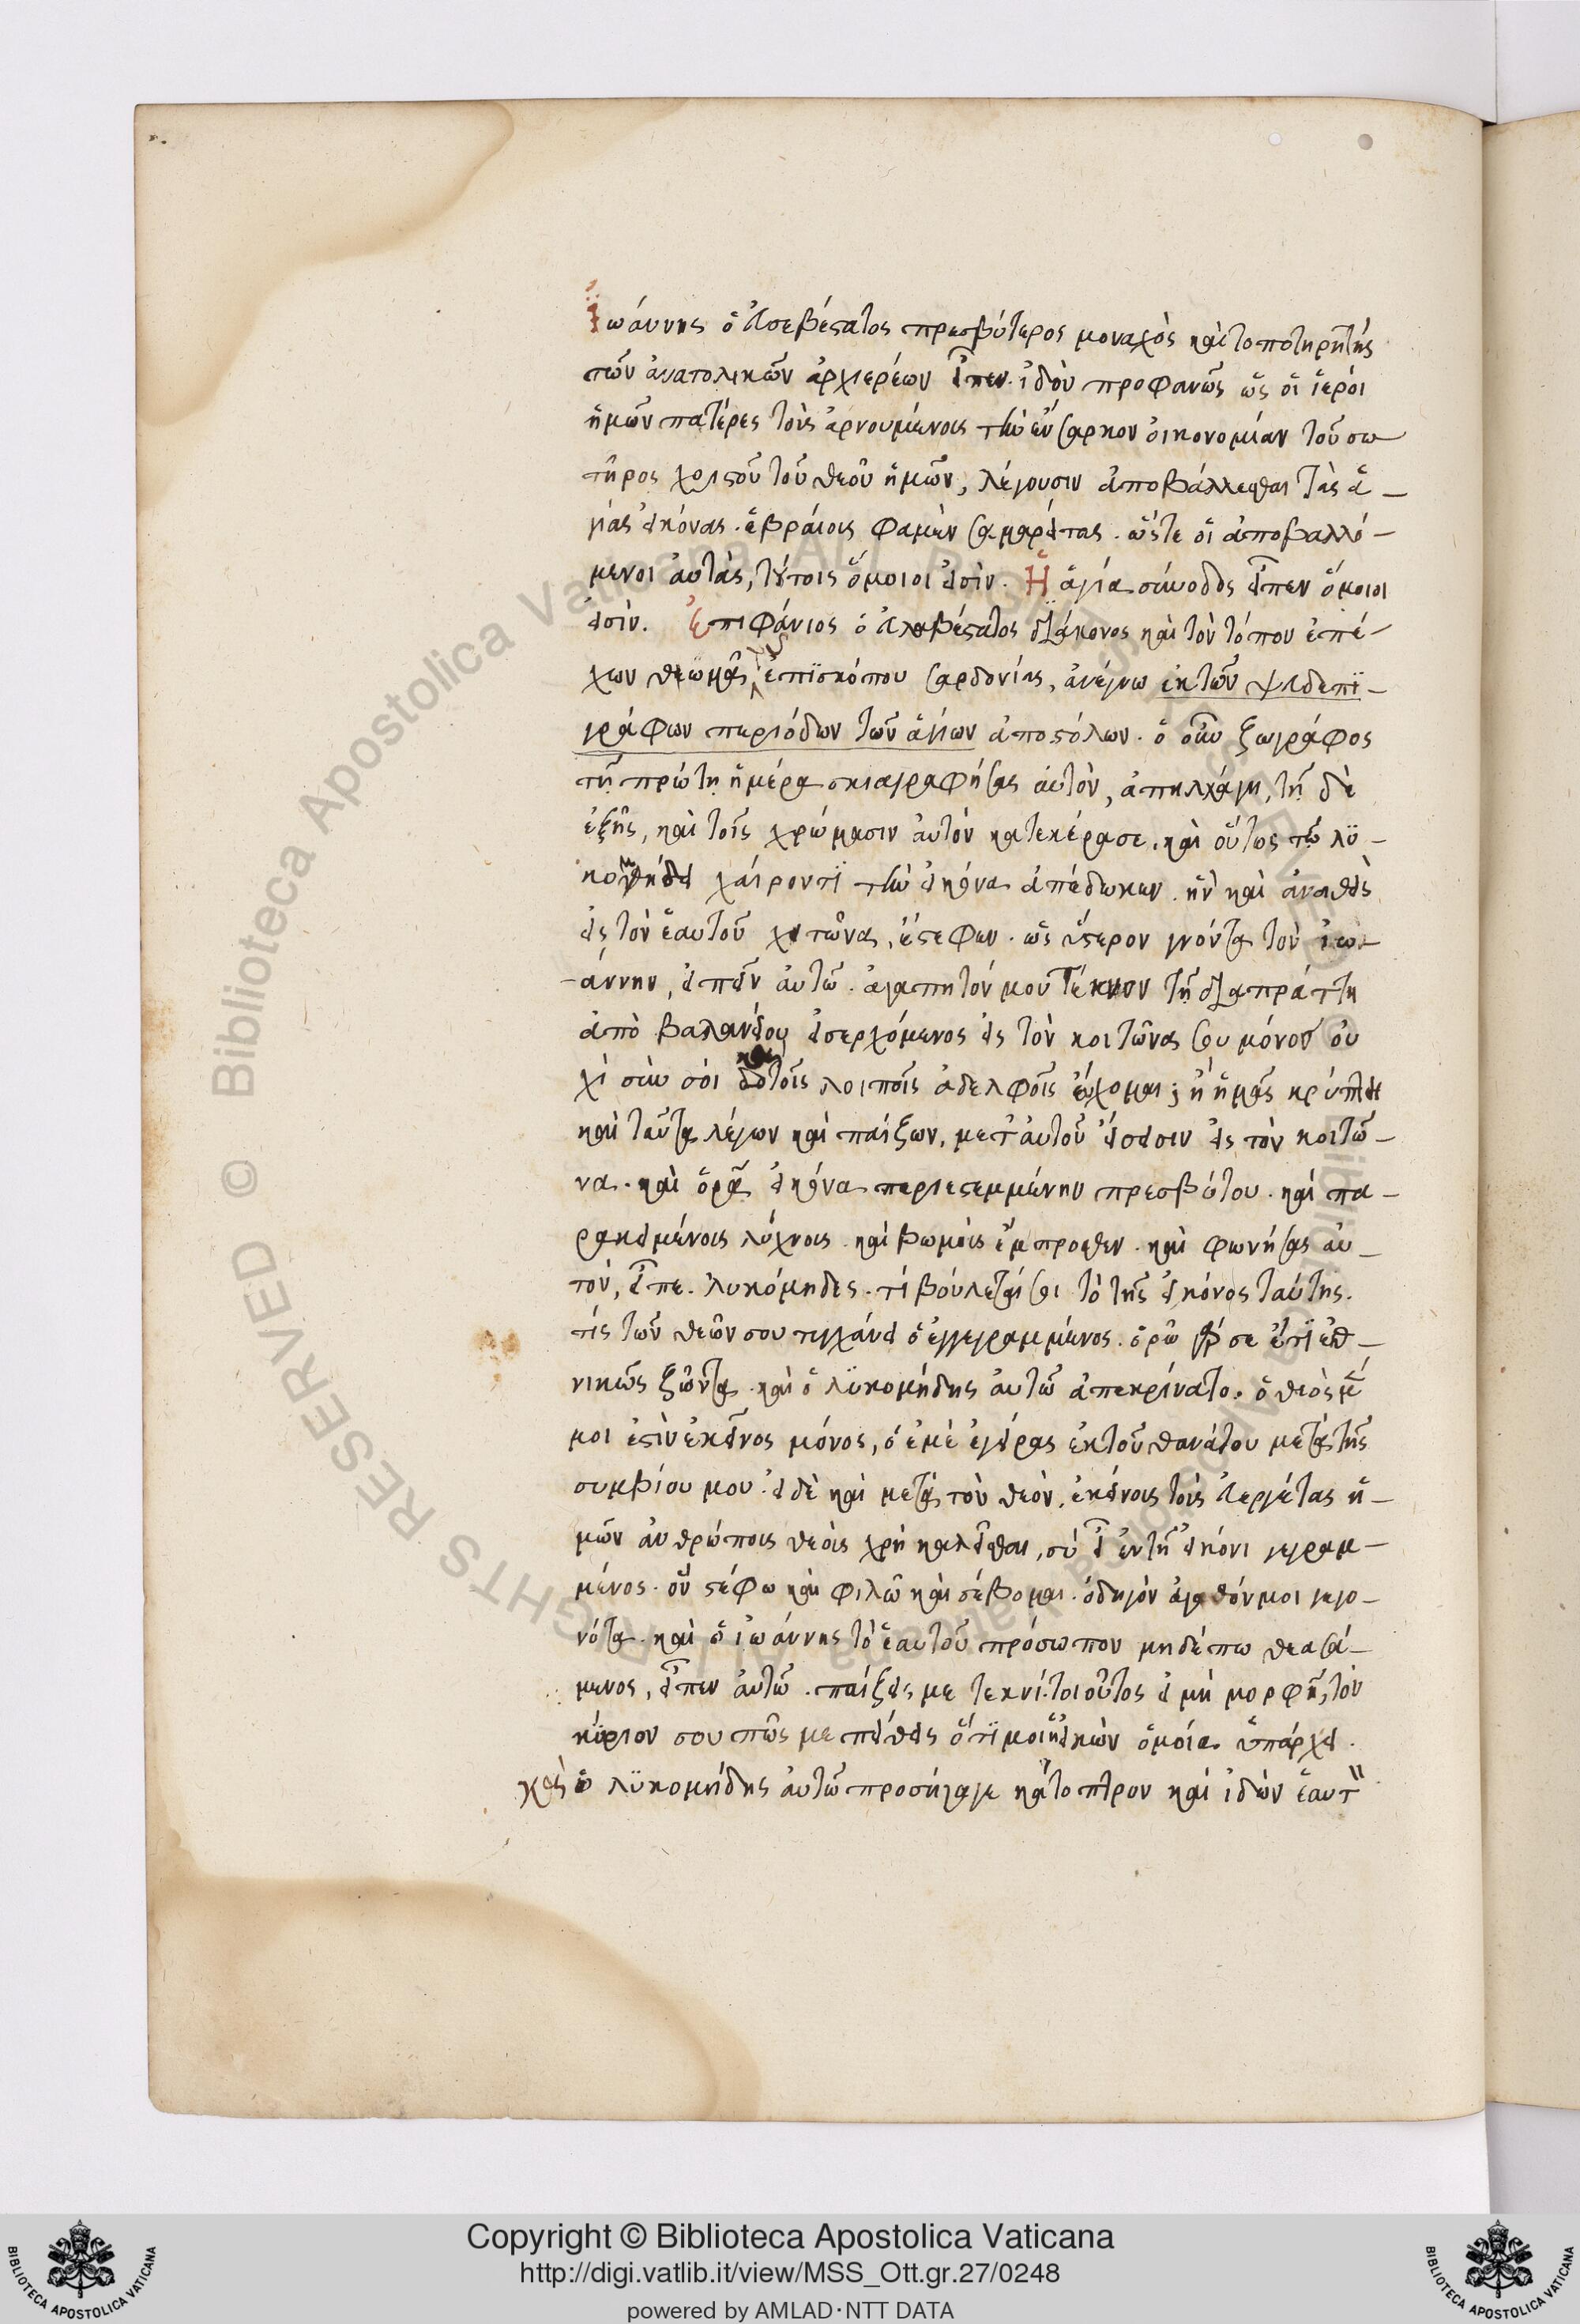 Ἰωάννης ὁ εὐσεβέστατος πρεσβύτερος μοναχὸς καὶ τοποτηρητὴς
τῶν ἀνατολικῶν ἀρχιερέων εἶπεν· ἰδοὺ προφανῶς ὡς οἱ ἱεροὶ
ἡμῶν πατέρες τοὺς ἀρνουμένους τὴν ἔνσαρκον οἰκονομίαν τοῦ σω
τῆρος χριστοῦ τοῦ θεοῦ ἡμῶν, λέγουσιν ἀποβάλλεσθαι τὰς ἁ-
γίας εἰκόνας· ἑβραίους φαμὲν σαμαρείτας· ὥστε οἱ ἀποβαλλό-
μενοι αὐτὰς, τούτοις ὅμοιοι εἰσίν. Ἡ ἁγία σύνοδος εἶπεν ὅμοιοι
εἰσίν. Ἐπιφάνιος ὁ εὐλαβέστατος διάκονος καὶ τὸν τόπον ἐπέ-
χων θεωμᾶ ἐπϊσκόπου σαρδονίας, ἀνέγνω ἐκ τῶν ψευδεπϊ-
γράφων περιόδων τῶν ἁγίων ἀποστόλων· ὁ οὖν ζωγράφος
τῇ πρώτῃ ἡμέρᾳ σκιαγραφήσας αὐτὸν, ἀπηλλάγη, τῇ δὲ
ἑξῆς, καὶ τοῖς χρώμασιν αὐτὸν κατεκέρασε, καὶ οὕτως τῷ λϋ-
κομήδει χαίροντϊ τὴν εἰκόνα ἀπέδωκεν· ἣν καὶ ἀναθεὶς
εἰς τὸν ἑαυτοῦ κοιτῶνα, ἔστεφεν· ὡς ὕστερον γνόντα τὸν ἰω-
-άννην, εἰπεῖν αὐτῷ· ἀγαπητόν μου τέκνον τῇ διαπράττῃ
ἀπὸ βαλανείου εἰσερχόμενος εἰς τὸν κοιτῶνα σου μόνον οὐ
χὶ σὺν σοὶ καὶ τοῖς λοιποῖς ἀδελφοῖς εὔχομαι; ἢ ἡμᾶς κρύπτει
καὶ ταῦτα λέγων καὶ παίζων, μετ' αὐτοῦ εἴσεισιν εἰς τὸν κοιτῶ-
να· καὶ ὁρᾷ εἰκόνα περιεστεμμένην πρεσβύτου· καὶ πα-
ρακειμένους λύχνους· καὶ βωμοὺς ἔμπροσθεν· καὶ φωνήσας αὐ-
τὸν, εἶπε· λυκόμηδες· τί βούλεταί σοι τὸ τῆς εἰκόνος ταύτης.
τίς τῶν θεῶν σου τυγχάνει ὁ ἐγγεγραμμένος· ὁρῶ γάρ σε ἔτϊ ἐθ-
νικῶς ζῶντα· καὶ ὁ λϋκομήδης αὐτῷ ἀπεκρίνατο· ὁ θεὸς μέν
μοι ἐστὶν ἐκεῖνος μόνος, ὁ ἐμὲ ἐγείρας ἐκ τοῦ θανάτου μετὰ τῆς
συμβίου μου· εἰ δὲ καὶ μετὰ τὸν θεὸν, ἐκείνους τοὺς εὐεργέτας ἡ-
μῶν ἀνθρώπους θεοὺς χρὴ καλεῖσθαι, σὺ εἶ ἐν τῇ εἰκόνι γεγραμ-
μένος· ὃν στέφω καὶ φιλῶ καὶ σέβομαι· ὁδηγὸν ἀγαθόν μοι γεγο-
νότα· καὶ ὁ ἰωάννης τὸ ἑαυτοῦ πρόσωπον μηδέπω θεασά-
μενος, εἶπεν αὐτῷ· παίζεις με τεκνί· τοιοῦτος εἰμὴ μορφῇ, τὸν
κύριον σου πῶς με πείθεις ὅτϊ μοι ἡ εἰκὼν ὁμοία ὑπάρχει·
καὶ ὁ λϋκομήδης αὐτῷ προσήγαγε κάτοπτρον καὶ ἰδὼν ἑαυτ
Copyright © Biblioteca Apostolica Vaticana
http://digi.vatlib.it/view/MSS_Ott.gr.27/0248
powered by AMLAD·NTT DATA